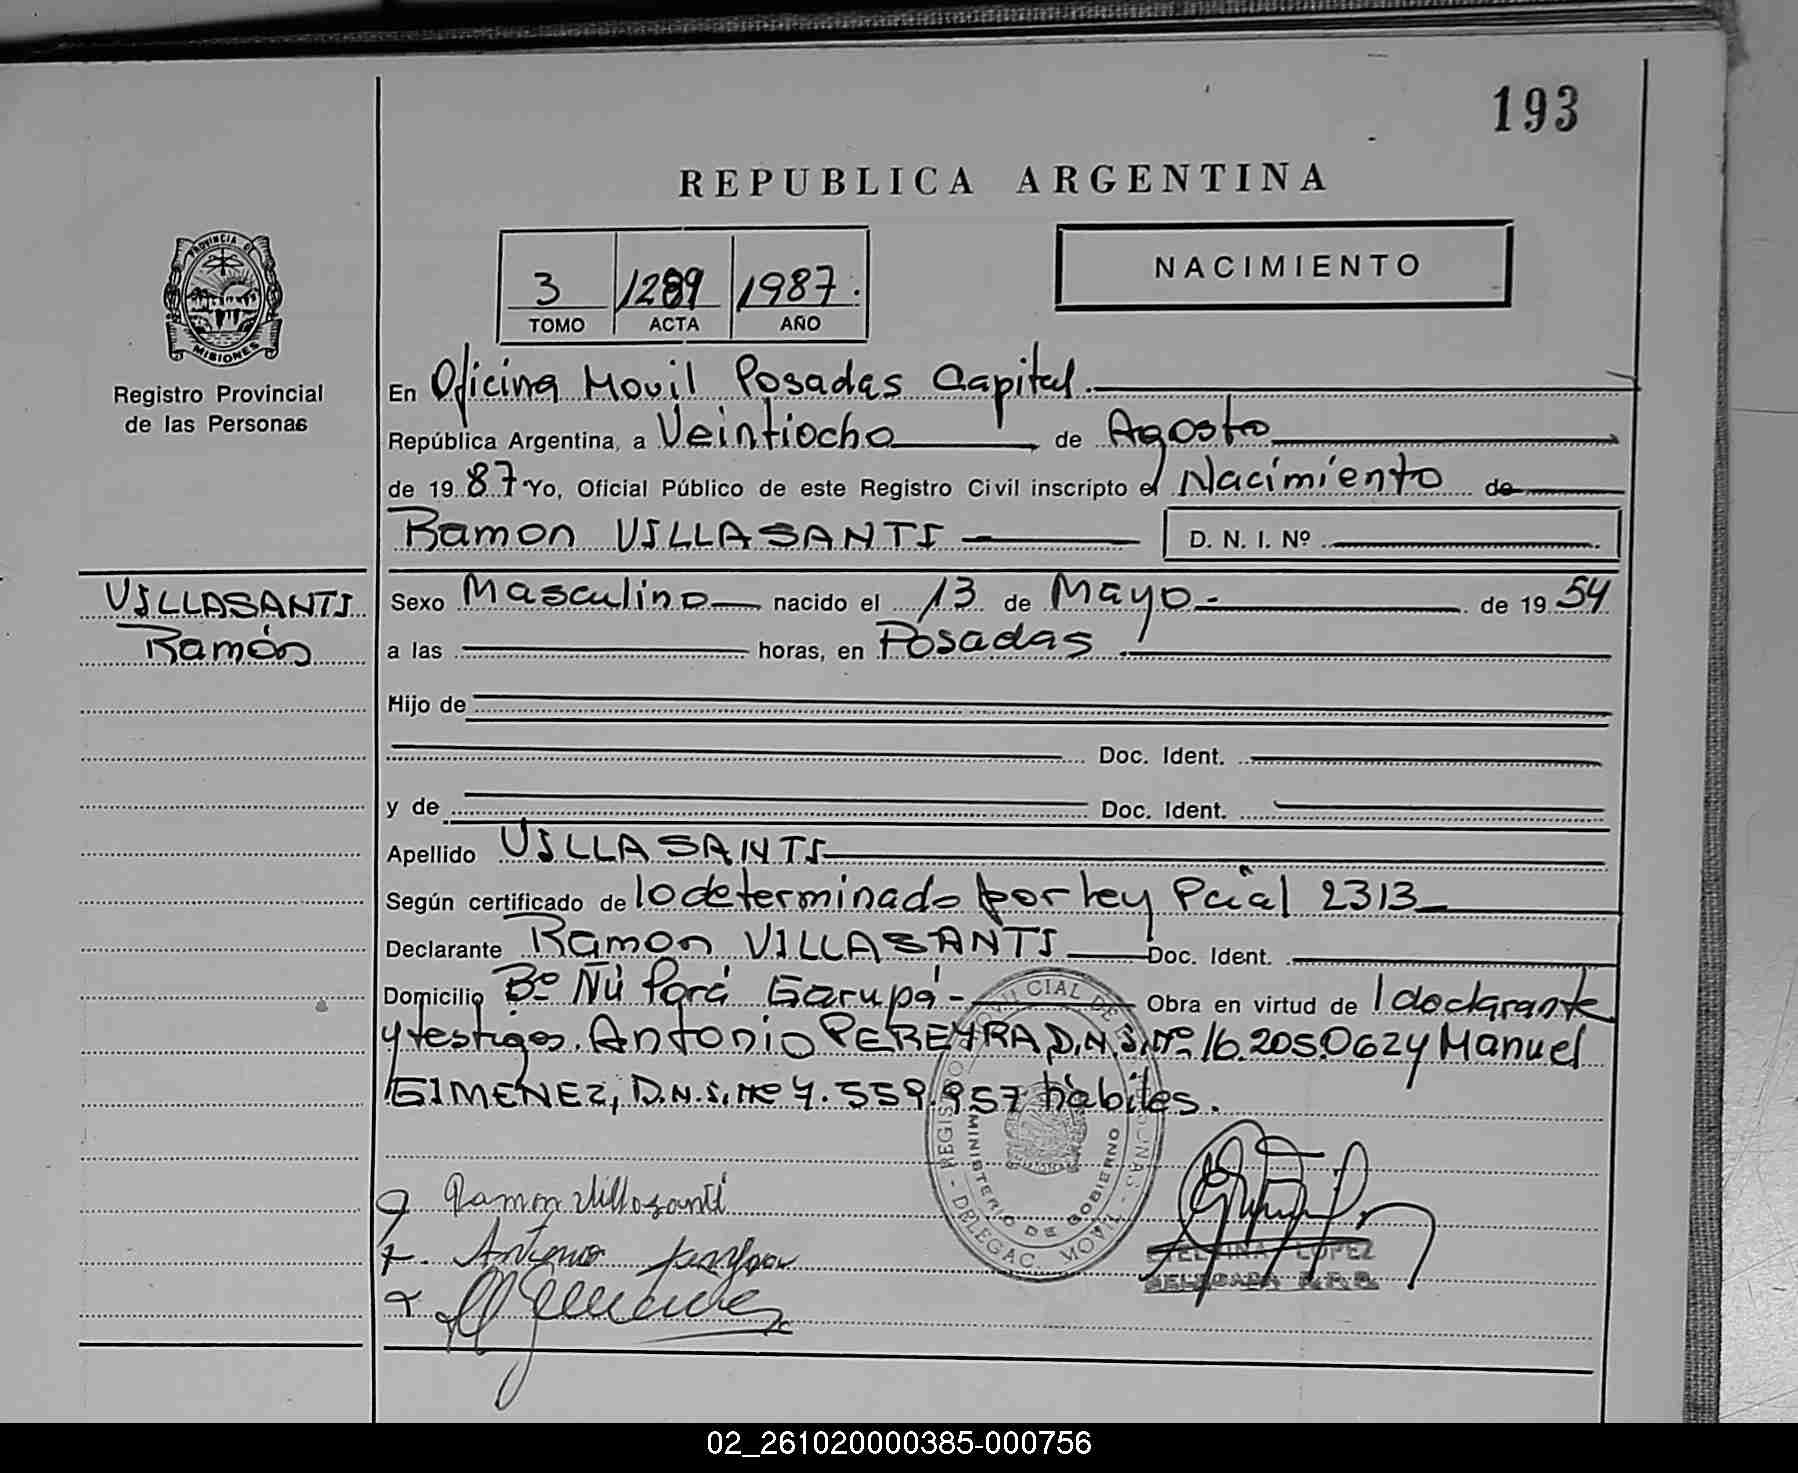 193
REPUBLICA ARGENTINA
3 1289 1987.
TOMO ACTA AÑO
NACIMIENTO
PROVINCIA DE
MISIONES
Registro Provincial
de las Personas
En Oficina Movil Posadas Capital.
República Argentina, a Veintiocho de Agosto
de 1987 Yo, Oficial Público de este Registro Civil inscripto el Nacimiento de
Ramon VILLASANTI D. N. I. Nº
VILLASANTI
Ramón
Sexo Masculino nacido el 13 de Mayo de 1954
a las horas, en Posadas
Hijo de
Doc. Ident.
y de Doc. Ident.
Apellido VILLASANTI
Según certificado de lo determinado por Ley Pcial 2313
Declarante Ramon VILLASANTI Doc. Ident.
Domicilio Bº Ñu Porá Garupá- Obra en virtud de l declarante
y testigos. Antonio PEREYRA D.N.I. Nº 16.205.062 y Manuel
GIMENEZ, D.N.I. Nº 7.559.957 hábiles.
MINISTERIO DE GOBIERNO
DELEGAC. MOVIL
Ramon Villasanti
Antonio
LOPEZ
DELEGADA
02_261020000385-000756